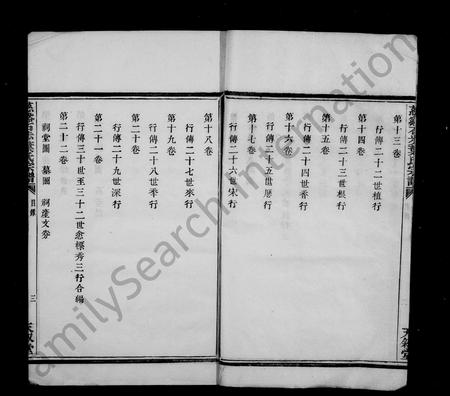 第十三卷
行傳二十二世植行
第十四卷
行傳二十三世根行
第十五卷
行傳二十四世香行
第十六卷
行傳二十五世馬行
第十七卷
行傳二十六世宋行
第十八卷
行傳二十七世來行
第十九卷
行傳二十八世喬行
第二十卷
行傳二十九世深行
第二十一卷
行傳三十世至三十二世愈標秀三行合編
第二十二卷
祠堂圖 墓圖 祠產文券
目錄
三
FamilySearch Information